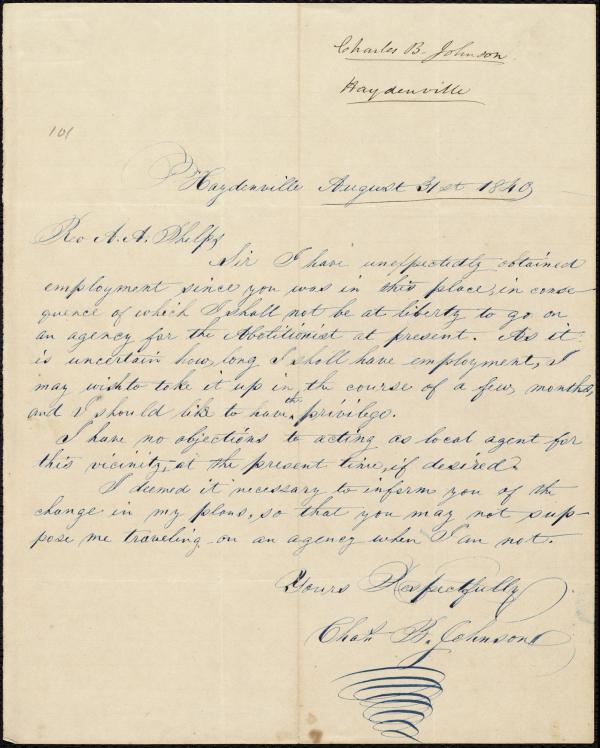 Charles B. Johnson.
Haydenville
101
Haydenville August 31st 1840
Rev A. A. Phelps
Sir I have unexpectedly obtained
employment since you was in this place, in conse-
quence of which I shall not be at liberty to go on
an agency for the Abolitionist at present. As it
is uncertain how long I shall have employment, I
may wish to take it up in the course of a few months,
and I should like to have the privilege.
I have no objections to acting as local agent for
this vicinity, at the present time, if desired.
I deemed it necessary to inform you of the
change in my plans, so that you may not sup-
pose me traveling on an agency when I am not.
Yours Respectfully
Chas B. Johnson